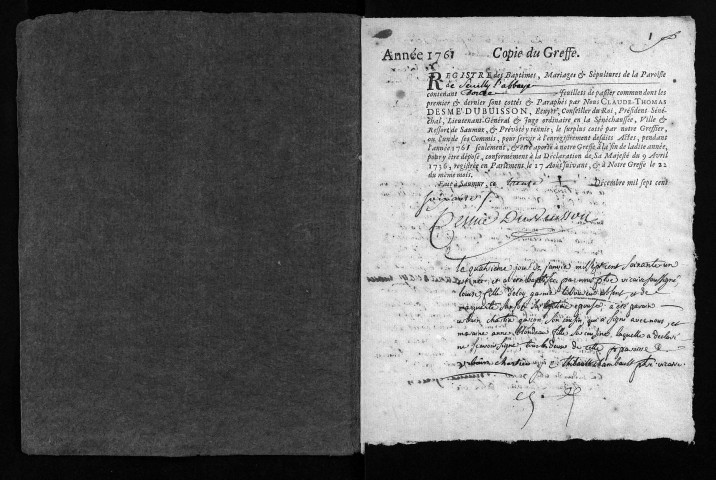 1
Année 1761 Copie du Greffe.
REGISTRE des Baptêmes, Mariages & Sépultures de la Paroisse
de Seuilly l'abbaye
contenant douze Feuillets de papier commun dont les
premier & dernier sont cottés & Paraphés par Nous CLAUDE-THOMAS
DESMÉ DUBUISSON, Ecuyer, Conseiller du Roi, Président Séné-
chal, Lieutenant-Général & Juge ordinaire en la Sénéchaussée, Ville &
Ressort de Saumur, & Prévôté y réunie; le surplus cotté par notre Greffier,
ou l'un de ses Commis, pour servir à l'enregistrement desdits Actes, pendant
l'année 1761 seulement, & être aporté à notre Greffe à la fin de ladite année,
pour y être déposé, conformément à la Déclaration de Sa Majesté du 9 Avril
1736, registrée en Parlement le 17 Août suivant, & à Notre Greffe le 22
du même mois.
Fait à Saumur, ce treize Décembre mil sept cent
soixante
Desmé Dubuisson
Le quatrième jour de janvier mil sept cent soixante un
et a été baptisée par nous ptre vicaire soussigné
louise fille de
marguerite son épouse a été parain
urbain cousin, qui a signé avec nous, et
maraine anne blondeau fille sa cousine, laquelle a déclaré
ne sçavoir signer, tous deux de cette paroisse
urbain chartier Thibault chambault ptre vicaire